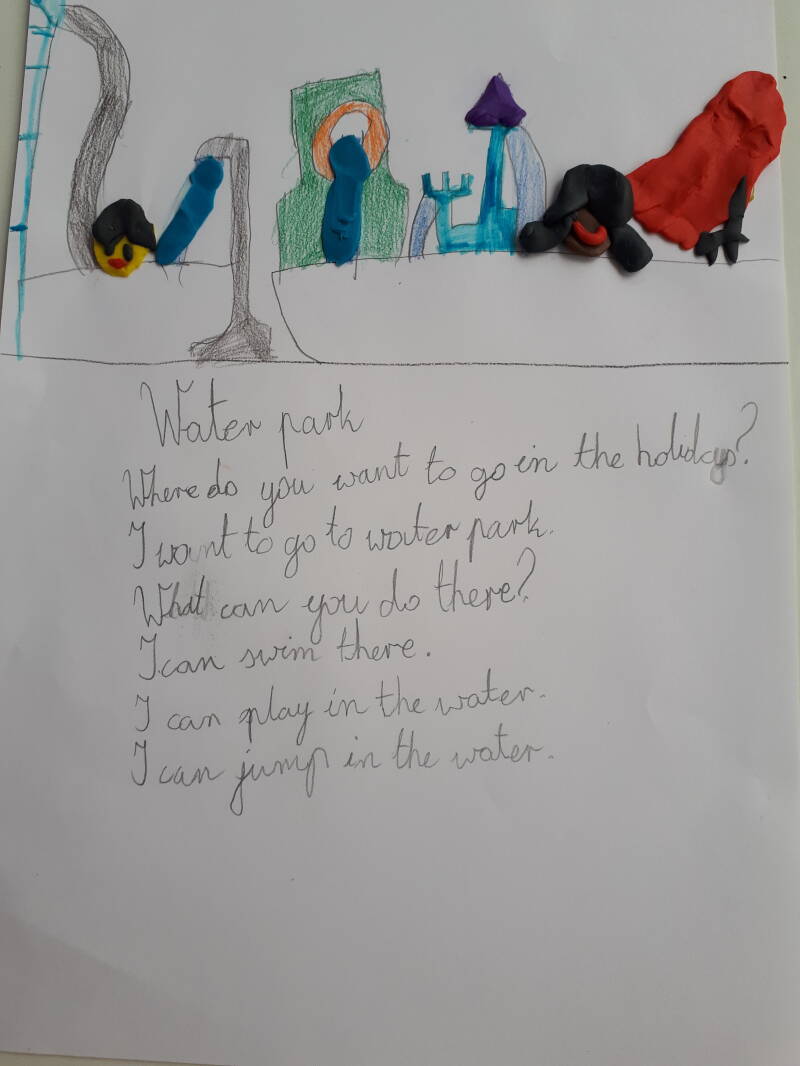 Water park
Where do you want to go in the holidays?
I want to go to water park.
What can you do there?
I can swim there.
I can play in the water.
I can jump in the water.